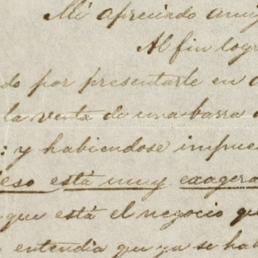 Mi apreciado amig
Al fin logr
do por presentarle en
la venta de una barra
: y habiendose impue
eso está muy exagera
que está el negocio qu
entendia que ya se hab